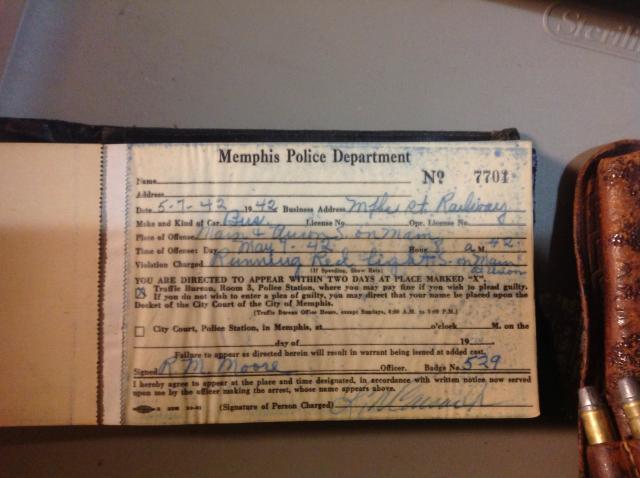 Sterili
Memphis Police Department
Nº 7701
Name
Address
Date 5-7-42 1942 Business Address Mphs St Railway
Make and Kind of Car Bus License No. Opr. License No.
Place of Offense Main & Auson S. on Main
Time of Offense: Day May 7-42 Hour 8 a M. 42
Violation Charged Running Red light S. on Main
at Auson
(If Speeding, Show Rate)
YOU ARE DIRECTED TO APPEAR WITHIN TWO DAYS AT PLACE MARKED "X".
Traffic Bureau, Room 3, Police Station, where you may pay fine if you wish to plead guilty.
If you do not wish to enter a plea of guilty, you may direct that your name be placed upon the
Docket of the City Court of the City of Memphis.
(Traffic Bureau Office Hours, except Sundays, 8:00 A.M. to 5:00 P.M.)
City Court, Police Station, in Memphis, at o'clock M. on the
day of 19
Failure to appear as directed herein will result in warrant being issued at added cost.
Signed R M Moore Officer. Badge No. 529
I hereby agree to appear at the place and time designated, in accordance with written notice now served
upon me by the officer making the arrest, whose name appears above.
(Signature of Person Charged)